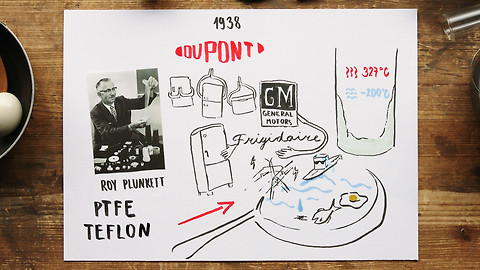 1938
DUPONT
GM
GENERAL
MOTORS
Frigidaire
327°C
-200°C
ROY PLUNKETT
PTFE
TEFLON